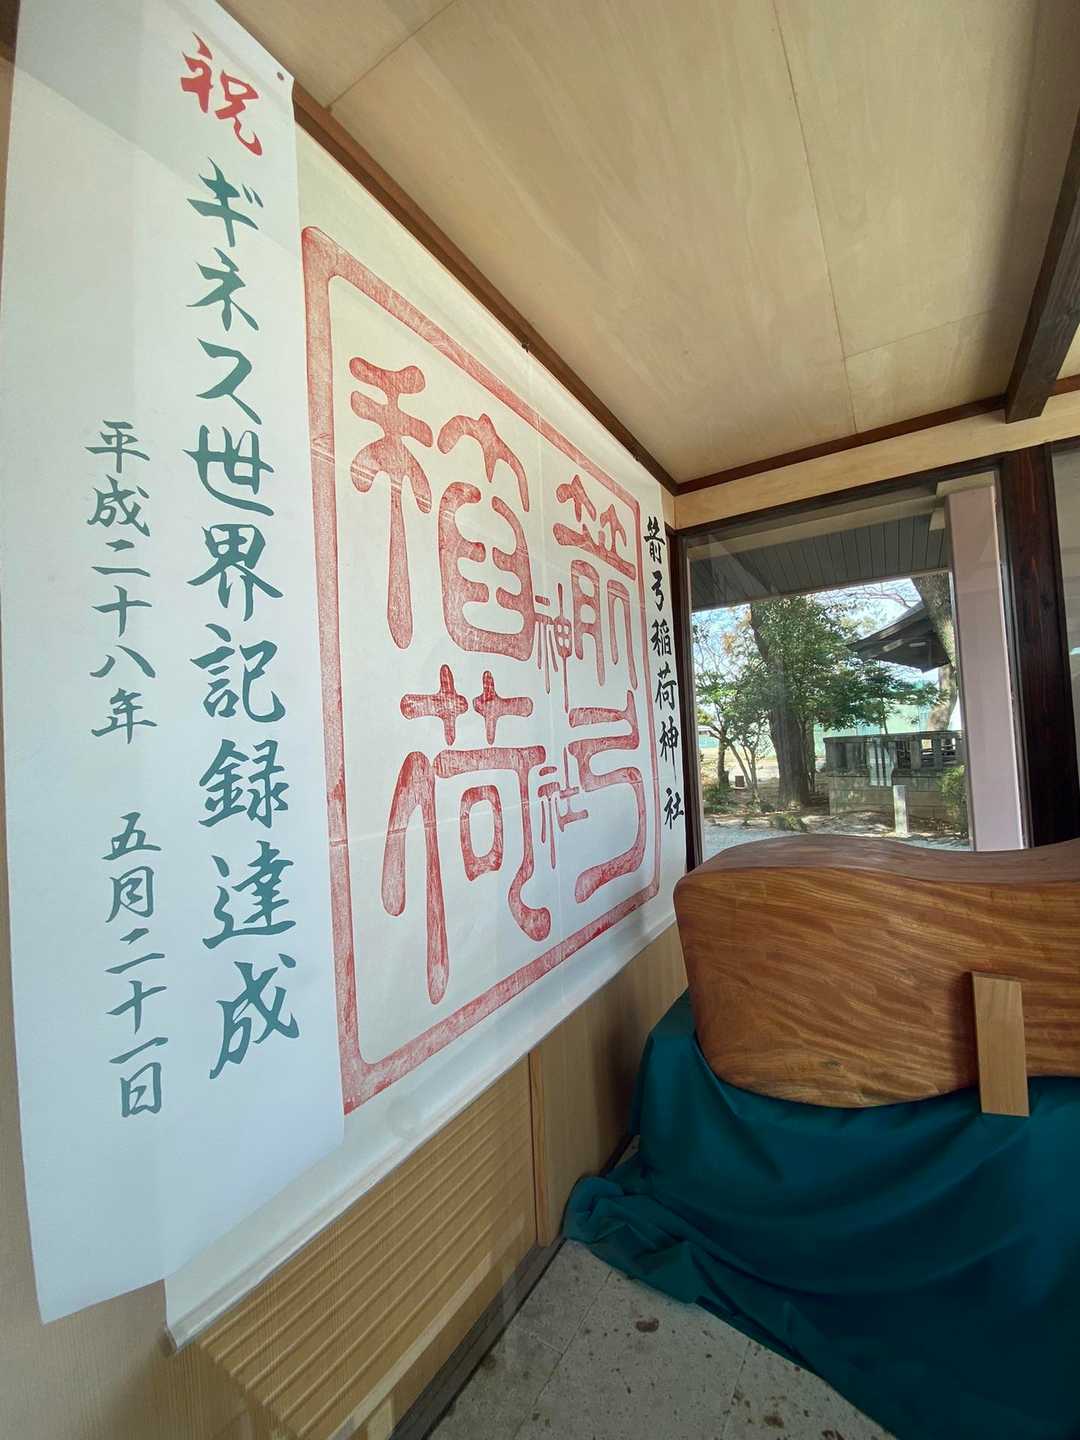 箭弓稲荷神社
箭弓
神社
稲荷
祝 ギネス世界記録達成
平成二十八年 五月二十一日